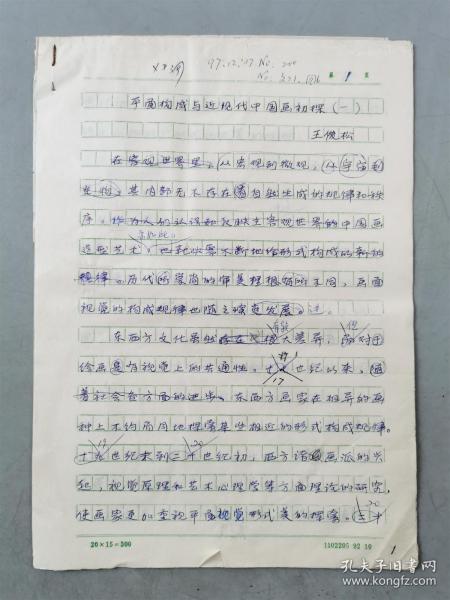 97.12.17.No.
No.
第 1 页
平面构成与近现代中国画初探(一)
王俊松
在客观世界里,从宏观到微观,从宇宙到
生物,其内部无不存在着自然生成的规律和秩
序。作为人们认识和反映主客观世界的中国画
造型艺术,也不断地给形式构成的新的
规律。历代的审美不同,画面
视觉的构成规律也随之发展。
东西方文化虽然存在大差异,绘
绘画是有视觉上的共通性。世纪以来,随
着社会各方面的进步,东西方画家在相异的画
种上不约而同地探索某些相近的形式构成规律。
十九世纪末到二十世纪初,西方诸画派的兴
起,视觉原理和艺术心理学等方面理论的研究,
使画家更加重视平面视觉形式美的探索。
17
19
20
20×15=300
1102205 92 10
1
孔夫子旧书网